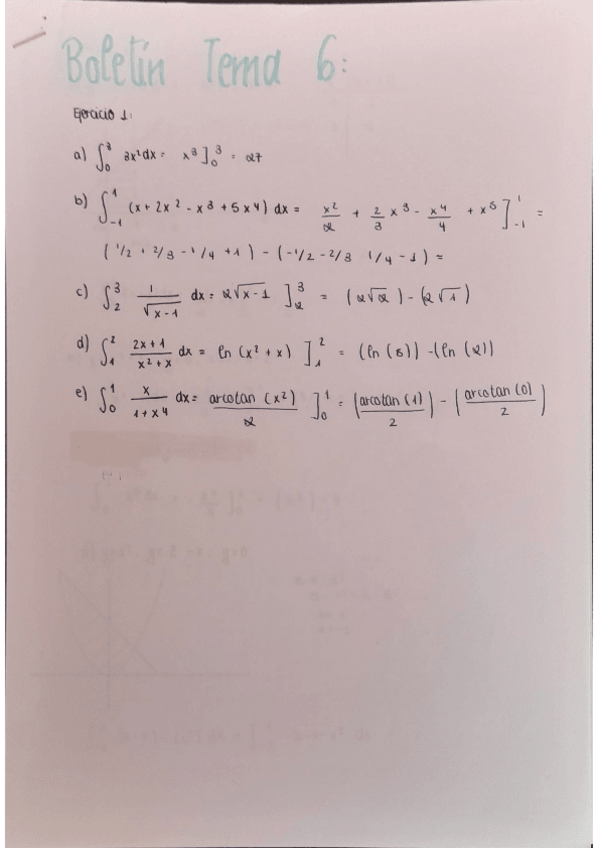 Boletín Tema 6:
Ejercicio 1:
a) ∫₀³ 3x² dx = x³]₀³ = 27
b) ∫₋₁¹ (x + 2x² - x³ + 5x⁴) dx = x²/2 + 2/3 x³ - x⁴/4 + x⁵]₋₁¹ =
(1/2 + 2/3 - 1/4 + 1) - (-1/2 - 2/3 1/4 - 1) =
c) ∫₂³ 1/√(x-1) dx = 2√(x-1)]₂³ = (2√2) - (2√1)
d) ∫₁² (2x+1)/(x²+x) dx = ln (x² + x)]₁² = (ln (6)) - (ln (2))
e) ∫₀¹ x/(1+x⁴) dx = arcotan (x²)/2]₀¹ = (arcotan (1)/2) - (arcotan (0)/2)